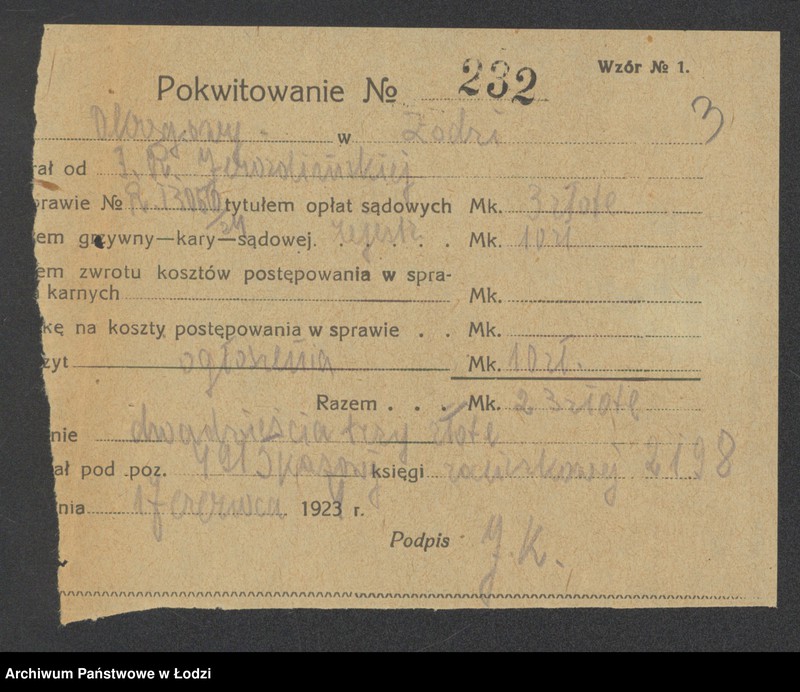 Wzór № 1.
Pokwitowanie № 232
3
Okręgowy w Łodzi
rał od J. R.
prawie № R 13050/24 tytułem opłat sądowych Mk. 3 złote
em grzywny—kary—sądowej. rejestr. Mk. 10 zł
em zwrotu kosztów postępowania w spra-
karnych Mk.
kę na koszty postępowania w sprawie . . Mk.
zyt ogłoszenia Mk. 10 zł.
Razem . . . Mk. 23 złote
nie dwadzieścia trzy złote
ał pod poz. księgi 2198
nia czerwca 1923 r.
Podpis J. K.
Archiwum Państwowe w Łodzi